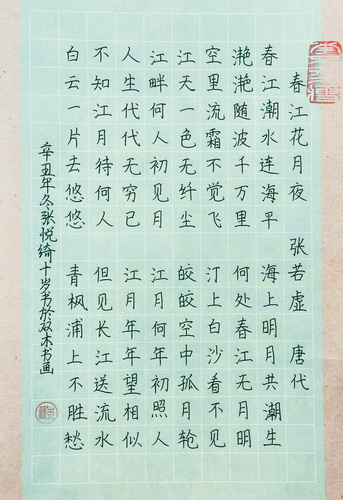 春江花月夜 张若虚 唐代
春江潮水连海平 海上明月共潮生
滟滟随波千万里 何处春江无月明
空里流霜不觉飞 汀上白沙看不见
江天一色无纤尘 皎皎空中孤月轮
江畔何人初见月 江月何年初照人
人生代代无穷已 江月年年望相似
不知江月待何人 但见长江送流水
白云一片去悠悠 青枫浦上不胜愁
辛丑年冬张悦绮十岁书於双木书画